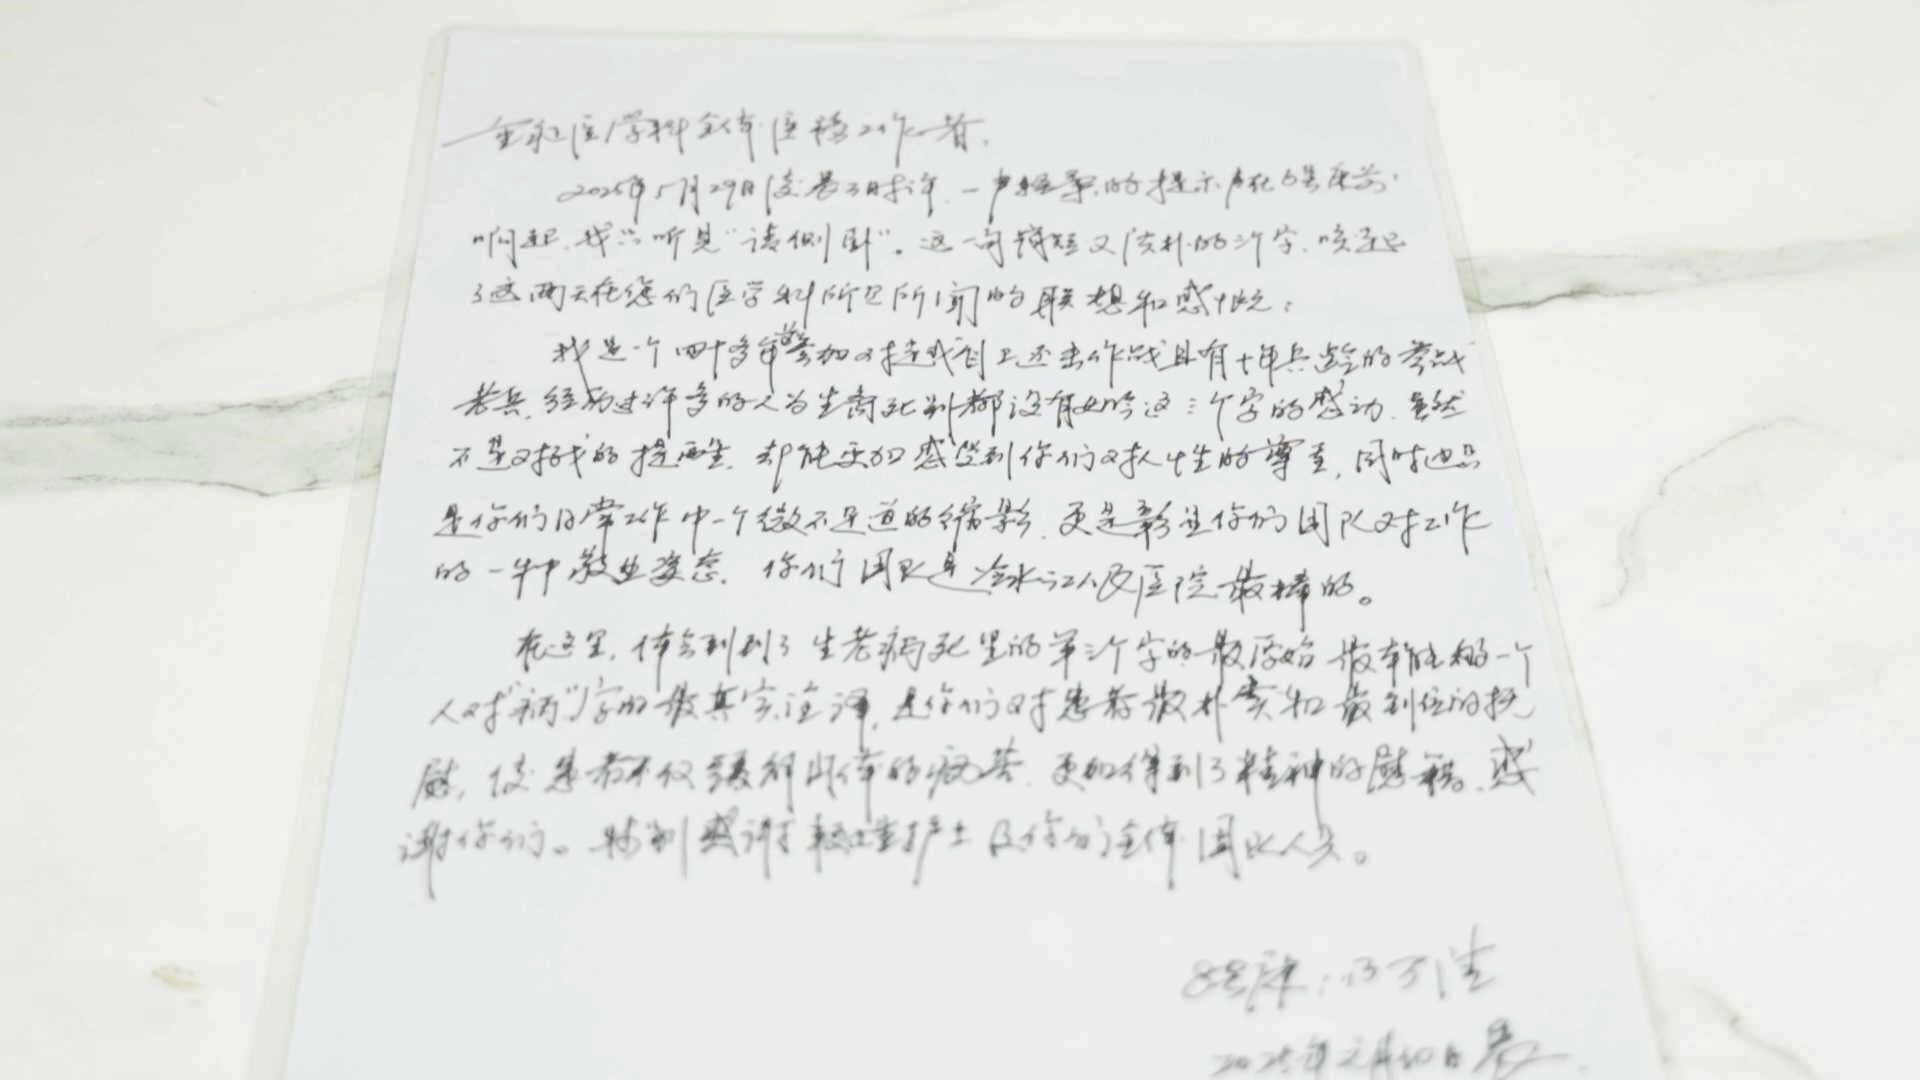 全科医学科全体医务工作者:
2025年5月29日凌晨3时许,一声轻柔的提示声在8号床前
响起,我只听见"请侧卧"。这一简短又质朴的三个字,唤起
了这两天在您们医学科所见所闻的联想和感慨:
我是一个四十多年前参加对越自卫还击作战且有十年兵龄的参战
老兵,经历过许多的人为生离死别都没有如今这三个字的感动,虽然
不是对我的提醒,却能更加感受到你们对人性的尊重,同时也只
是你们日常工作中一个微不足道的缩影,更是彰显你们团队对工作
的一种敬业姿态,你们团队是冷水江人民医院最棒的。
在这里,体会到了生老病死里的第三个字的最原始最本能的一个
人对"病"字的最真实注译,是你们对患者最朴实和最到位的抚
慰,使患者不仅缓解肉体的病苦,更加得到了精神的慰藉,感
谢你们。特别感谢 护士及你们全体团队人员。
8号床:
2025年 月30日晨